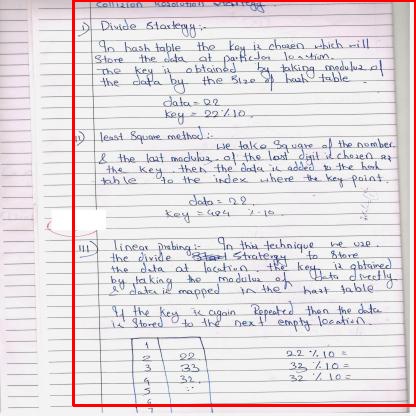 Collision Resolution Strategy
i) Divide Startegy:-
In hash table the key is chosen which will
store the data at particular location.
The key is obtained by taking modulus of
the data by the size of hash table.
data = 22
key = 22 % 10.
ii) least Square method:-
we take Square of the number
& the last modulus of the last digit is chosen as
the key. then the data is added to the hash
table to the index where the key point.
data = 22.
key = 484 % 10
iii) linear probing:- In this technique we use
the divide Stratergy to store
the data at location the key is obtained
by taking the modulus of data directly
& data is mapped in the hash table
If the key is again Repeated then the data
is stored to the next empty location.
1
2 22 22 % 10 =
3 33 33 % 10 =
4 32. 32 % 10 =
5
6
7